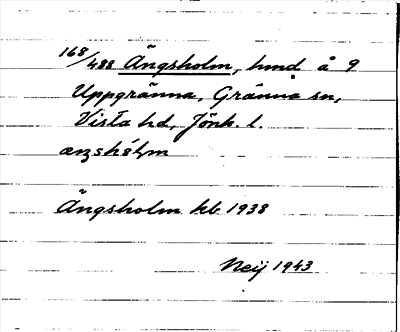 168/488 Ängsholm, hmd å 9
Uppgränna, Gränna sn,
Vista hd, Jönk. l.
Ängsholm kb 1938
Neij 1943